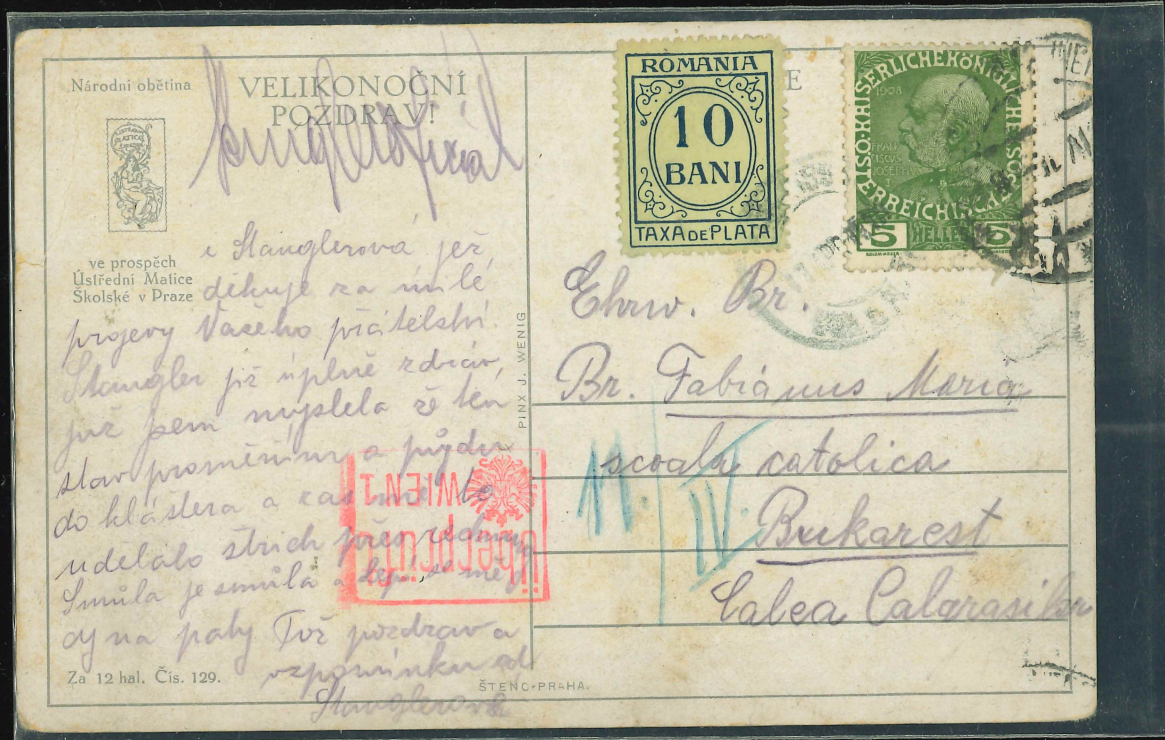 Národní obětina
VELIKONOČNÍ
POZDRAV!
ve prospěch
Ústřední Matice
Školské v Praze
Stanglerová jež
děkuje za milé
projevy Vašeho přátelství.
Stangler již úplně zdráv,
již jsem myslela že ten
stav proměním a půjdu
do kláštera a zas mě to
udělalo štrich přes
Smůla je smůla a
na paty Tož pozdrav a
vzpomínku od
Stanglerová
Za 12 hal. Čís. 129.
ŠTENC-PRAHA.
PINX J. WENIG
Überprüft
WIEN 1
ROMÂNIA
10
BANI
TAXA DE PLATA
KAISERLICHE KÖNIGLICHE ÖSTERREICHISCHE
1908
FRAN
CISCVS
JOSEPHVS
5 HELLER 5
Ehrw. Br.
Br. Fabiánus Maria
scoala catolica
11. IV.
Bukarest
Calea Calarasilor